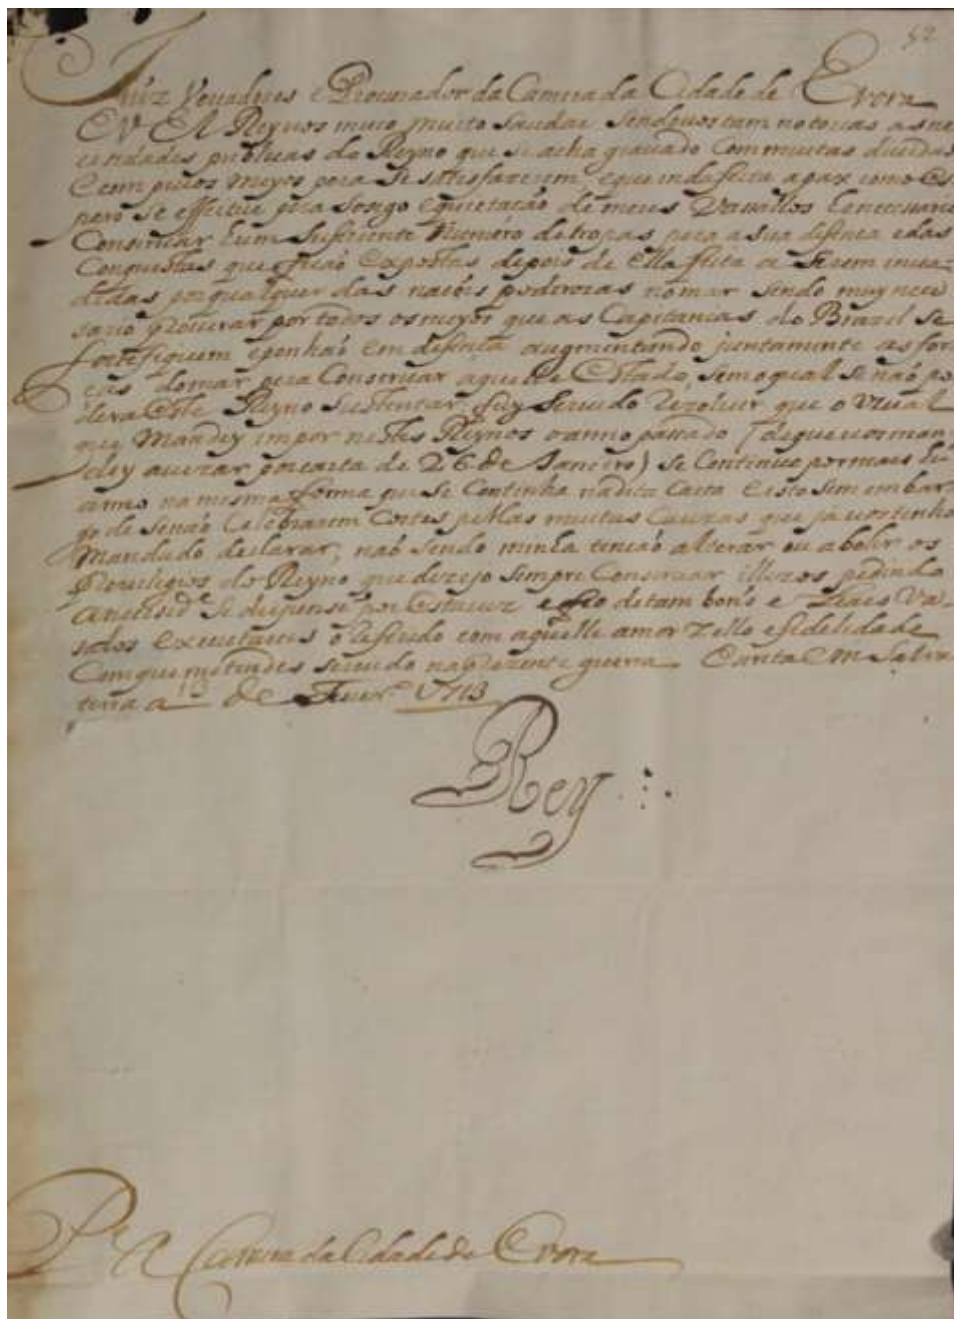 52
Juiz Vereadores e Procurador da Camera da Cidade de Evora
EU El Rey vos invio muito saudar. Sendevos tam notorias as ne
cessidades publicas do Reyno que se acha gravado com muitas dividas
e com poucos meyos pera se satisfazerem, e que inda feita a paz como es
pero se effeitue pera sosego e quietação de meus Vassallos he necessario
Conservar hum suficiente Numero de tropas pera a sua defença e das
Conquistas que ficaõ expostas depois de Ella feita a serem inva
didas por qualquer das naçois poderozas no mar sendo muy nece
sario procurar por todos os meyos que as Capitanias do Brazil se
fortefiquem e ponhaõ em defença augmentando juntamente as for
ças do mar pera Conservar aquelle Estado, sem o qual se naõ po
dera este Reyno sustentar, fuy servido rezolver que o uzual
que Mandey impor nestes Reynos o anno passado (de que vos man
dey avizar por carta de 26 de Janeiro) se Continue por mais hu
anno na mesma forma que se Continha na dita Carta e isto sem embar
go de senaõ Celebrarem Cortes pellas muitas Cauzas que ja vos tinha
Mandado declarar, naõ sendo minha tençaõ alterar ou abolir os
Privilegios do Reyno que dezejo sempre Conservar illezos pedindo
a necessid.e se dispense por esta vez e fio de tam bons e Leais Va
salos executareis o referido com aquelle amor Zello e fidelidade
Com que me tendes servido na prezente guerra. Escrita em Salva
terra a 13 de Fever.o 1713
Rey
P.a A Camera da Cidade de Evora